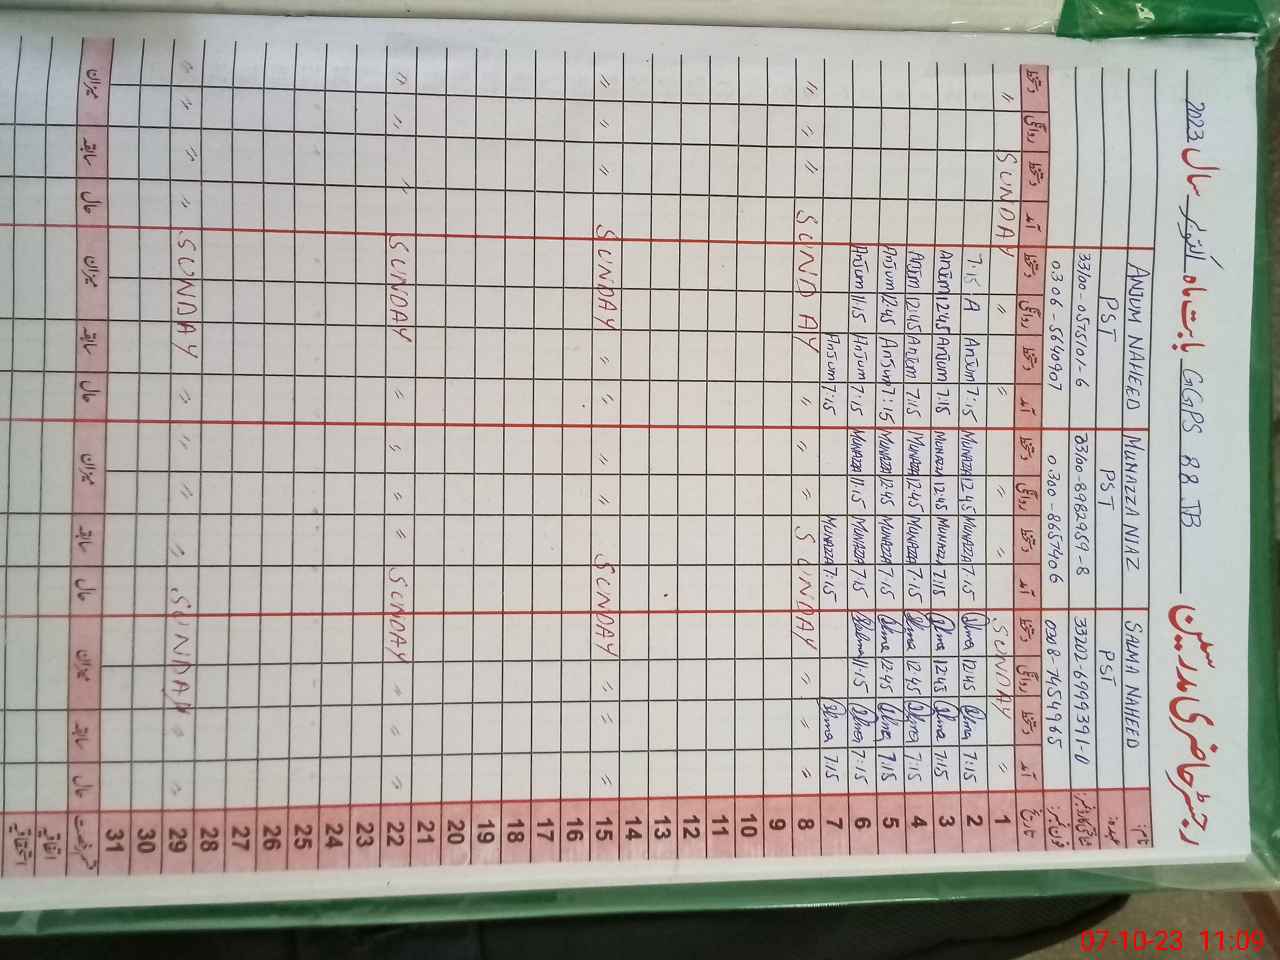 رجسٹر حاضری مدرسین GGPS 88 JB بابت ماہ اکتوبر سال 2023
نام: SALMA NAHEED MUNAZZA NIAZ ANJUM NAHEED
عہدہ: PST PST PST
شناختی کارڈ نمبر: 33202-6999391-0 33100-8982959-8 33100-0575101-6
فون نمبر: 0308-7454965 0300-8657406 0306-5640907
تاریخ آمد دستخط روانگی دستخط آمد دستخط روانگی دستخط آمد دستخط روانگی دستخط آمد دستخط روانگی دستخط
1 " SUNDAY " " " SUNDAY "
2 7:15 Salma 12:45 Salma 7:15 MUNAZZA 12:45 MUNAZZA 7:15 Anjum A 7:15
3 7:15 Salma 12:45 Salma 7:15 MUNAZZA 12:45 MUNAZZA 7:15 Anjum 12:45 Anjum
4 7:15 Salma 12:45 Salma 7:15 MUNAZZA 12:45 MUNAZZA 7:15 Anjum 12:45 Anjum
5 7:15 Salma 12:45 Salma 7:15 MUNAZZA 12:45 MUNAZZA 7:15 Anjum 12:45 Anjum
6 7:15 Salma 11:15 Salma 7:15 MUNAZZA 11:15 MUNAZZA 7:15 Anjum 11:15 Anjum
7 7:15 Salma 7:15 MUNAZZA 7:15 Anjum
8 " " " SUNDAY " " " SUNDAY " " "
9
10
11
12
13
14
15 " " " SUNDAY " " " " SUNDAY " " "
16
17
18
19
20
21
22 " " " SUNDAY " " " " SUNDAY " " "
23
24
25
26
27
28
29 " " SUNDAY " " " " SUNDAY " " " "
30
31
قسم رخصت حال سابقہ میزان حال سابقہ میزان حال سابقہ میزان حال سابقہ میزان
اتفاقیہ
استحقاقیہ
07-10-23 11:09